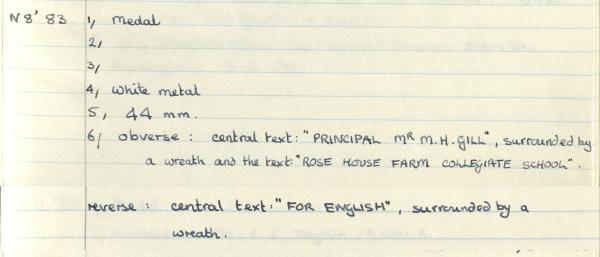 N8' 83 1, medal
2,
3,
4, white metal
5, 44 mm.
6, obverse : central text: "PRINCIPAL MR M.H.GILL", surrounded by
a wreath and the text: "ROSE HOUSE FARM COLLEGIATE SCHOOL".
reverse : central text: "FOR ENGLISH", surrounded by a
wreath.